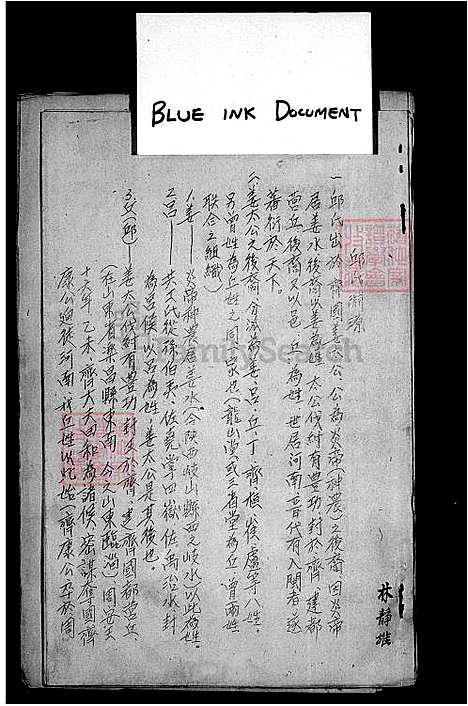 BLUE INK DOCUMENT
邱氏淵源
一邱氏出於齊國姜太公、公為炎帝(神農)之後裔、因炎帝
居姜水後裔以姜為姓、太公伐紂有豐功、封於齊、建都
營丘、後裔又以邑丘為姓、世居河南、晉代有入閩者、遂
蕃衍於天下。
二、姜太公之後裔、分派為姜、呂、丘、丁、齊、崔、盧等八姓、
另曾姓為丘姓之同宗也(龍山堂或三省堂為丘、曾兩姓
聯合之組織)
1.姜——炎帝神農居姜水(今陝西岐山縣西之岐水)以此為姓。
2.呂——共工氏從孫伯夷、佐堯掌四嶽、佐禹治水、封
為呂侯、以呂為姓、姜太公是其後也。
3.丘(邱)——姜太公伐紂有豐功、封於齊、建齊國都營丘、
(在山東省樂昌縣東南、今之山東臨淄)周安王
十六年乙未、齊大夫田和為諸侯、密謀奪國、齊
康公 河南 丘姓以 始(齊康公卒於周
林靜
FamilySearch